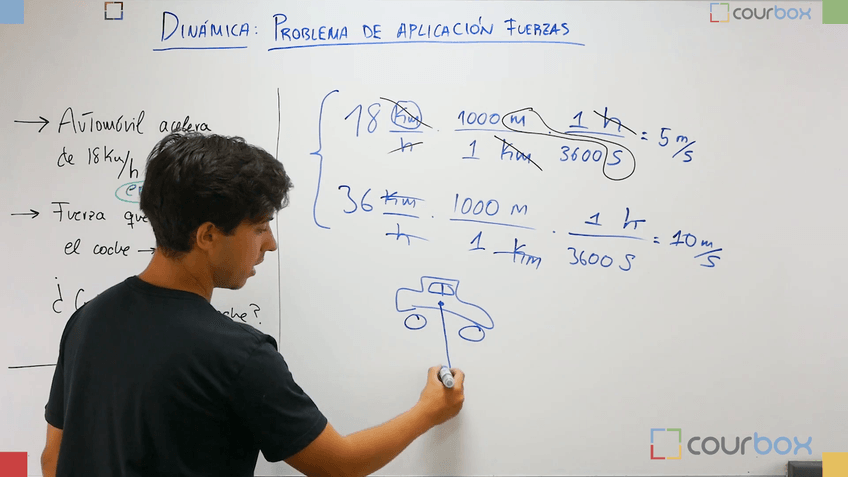 courbox
DINÁMICA: PROBLEMA DE APLICACIÓN FUERZAS
→ Automóvil acelera
de 18 Km/h
→ Fuerza que
el coche →
¿
18 Km/h · 1000 m/1 Km · 1 h/3600 S = 5 m/s
36 Km/h · 1000 m/1 Km · 1 h/3600 S = 10 m/s
courbox